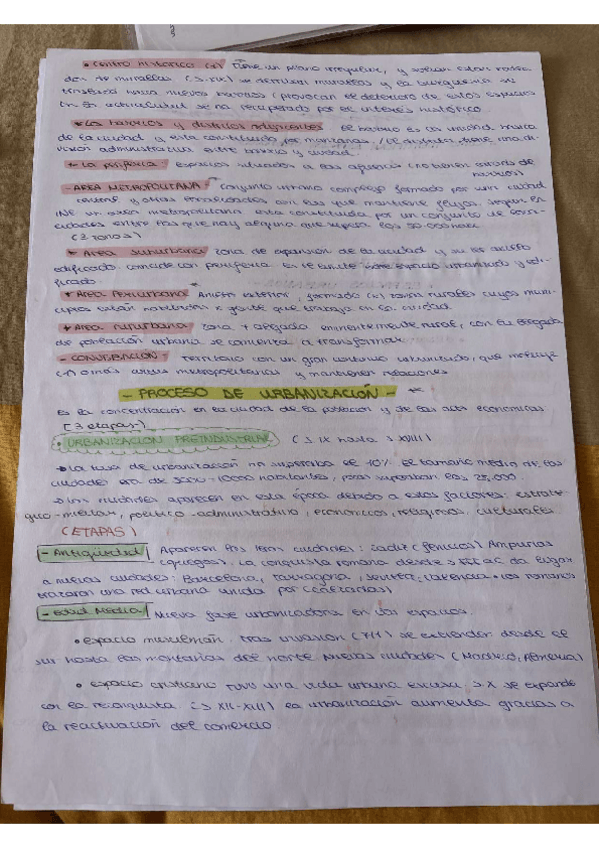 • Centro histórico (x) tiene un plano irregular, y solían estar rodea-
dos de murallas (S. XIX) se derriban murallas y la burguesía se
traslada hacia nuevos barrios (provocan el deterioro de estos espacios
En la actualidad se ha recuperado por el interés histórico
• Los barrios y distritos adyacentes el barrio es la unidad básica
de la ciudad y está constituido por manzanas. / el distrito tiene una di-
visión administrativa entre barrio y ciudad.
+ La periferia: espacios situados a las afueras (no tienen
barrios)
- AREA METROPOLITANA: Conjunto urbano complejo formado por una ciudad
central y otras localidades con las que mantiene flujos. Según el
INE un área metropolitana está constituida por un conjunto de
ciudades entre las que hay alguna que supera los 50.000 hab.
(3 zonas)
+ Area suburbana: zona de expansión de la ciudad y su
edificado. coincide con periferia. Es el límite entre espacio urbanizado y edi-
ficado
+ Area Periurbana: exterior, formado (x) zonas rurales cuyos muni-
cipios están habitados x gente que trabaja en la ciudad.
+ Area rururbana: zona + alejada eminentemente rural, con la llegada
de población urbana se comienza a transformar
- CONURBACIÓN: Territorio con un gran continuo urbanizado, que incluye
áreas metropolitanas y mantienen relaciones
- PROCESO DE URBANIZACIÓN -
Es la concentración en la ciudad de la población y de las acts económicas
[3 etapas]
• URBANIZACIÓN PREINDUSTRIAL (S IX hasta S XVIII)
• La tasa de urbanización no superaba el 10%. el tamaño medio de las
ciudades era de 5000 - 10000 habitantes, pocas superaban los 25.000.
• Las ciudades aparecen en esta época debido a estos factores: estraté-
gico-militar, político-administrativo, económicos, religiosos, culturales
(ETAPAS)
- Antigüedad Aparecen las 1eras ciudades: Cadiz (fenicios) Ampurias
(griegos). La conquista romana desde S III a.C da lugar
a nuevas ciudades: Barcelona, Tarragona, Valencia • los romanos
trazaron una red urbana unida por (calzadas)
- Edad Media Nueva fase urbanizadora en dos espacios.
• espacio musulmán. tras invasión (711) se extienden desde el
sur hasta las montañas del norte Nuevas ciudades (Madrid, Almería)
• espacio cristiano tuvo una vida urbana escasa S. X se expande
con la reconquista. (S XII-XIII) la urbanización aumenta gracias a
la reactivación del comercio